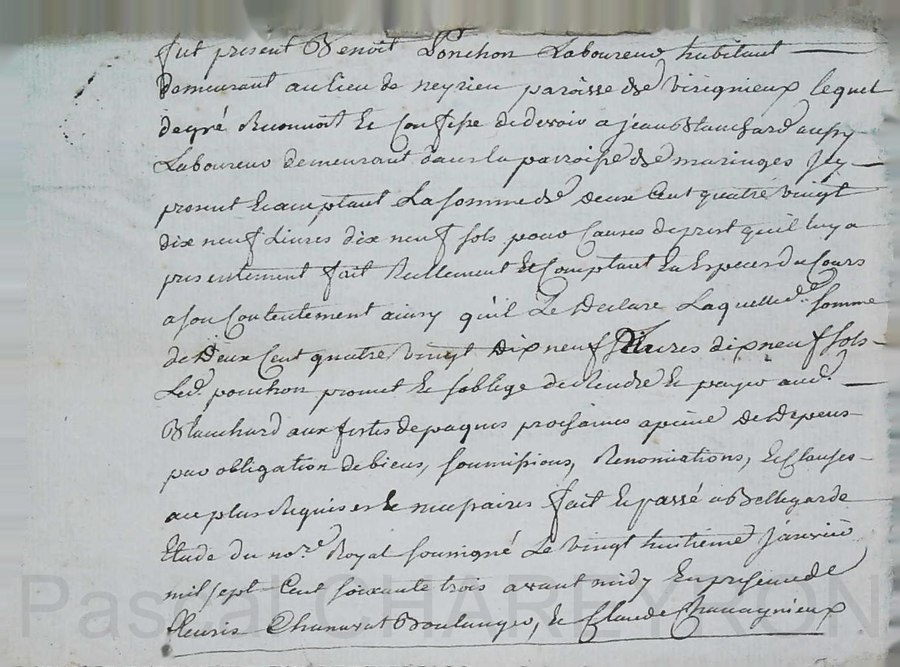 fut present Benoit Ponchon Laboureur habitant
Demeurant au lieu de neyrieu paroisse de virignieux lequel
de gré Reconnoit Et Confesse de devoir a jean Blanchard aussy
Laboureur demeurant dans la parroisse de maringes jcy
present Et acceptant La somme de deux Cent quatre vingt
dix neuf Livres dix neuf sols pour Causes de prest qu'il luy a
presentement fait Reellement Et Comptant En Especes du Cours
a son Contentement ainsy qu'il Le Declare Laquelle d. somme
de Deux Cent quatre vingt Dix neuf Livres dix neuf sols
Led. ponchon promet Et soblige de Rendre Et payer aud.
Blanchard aux festes de paques prochaines a peine de Depens
par obligation de biens, soumissions, Renonciations, Et Clauses
au plus Requises Et necessaires fait Et passé a Bellegarde
Etude du no.re Royal soussigné Le vingt huitieme janvier
mil sept Cent soixante trois avant midy En presence de
fleuris Chanavat Boulanger, Et Claude Chavagnieux
Pascal CHAREYRON